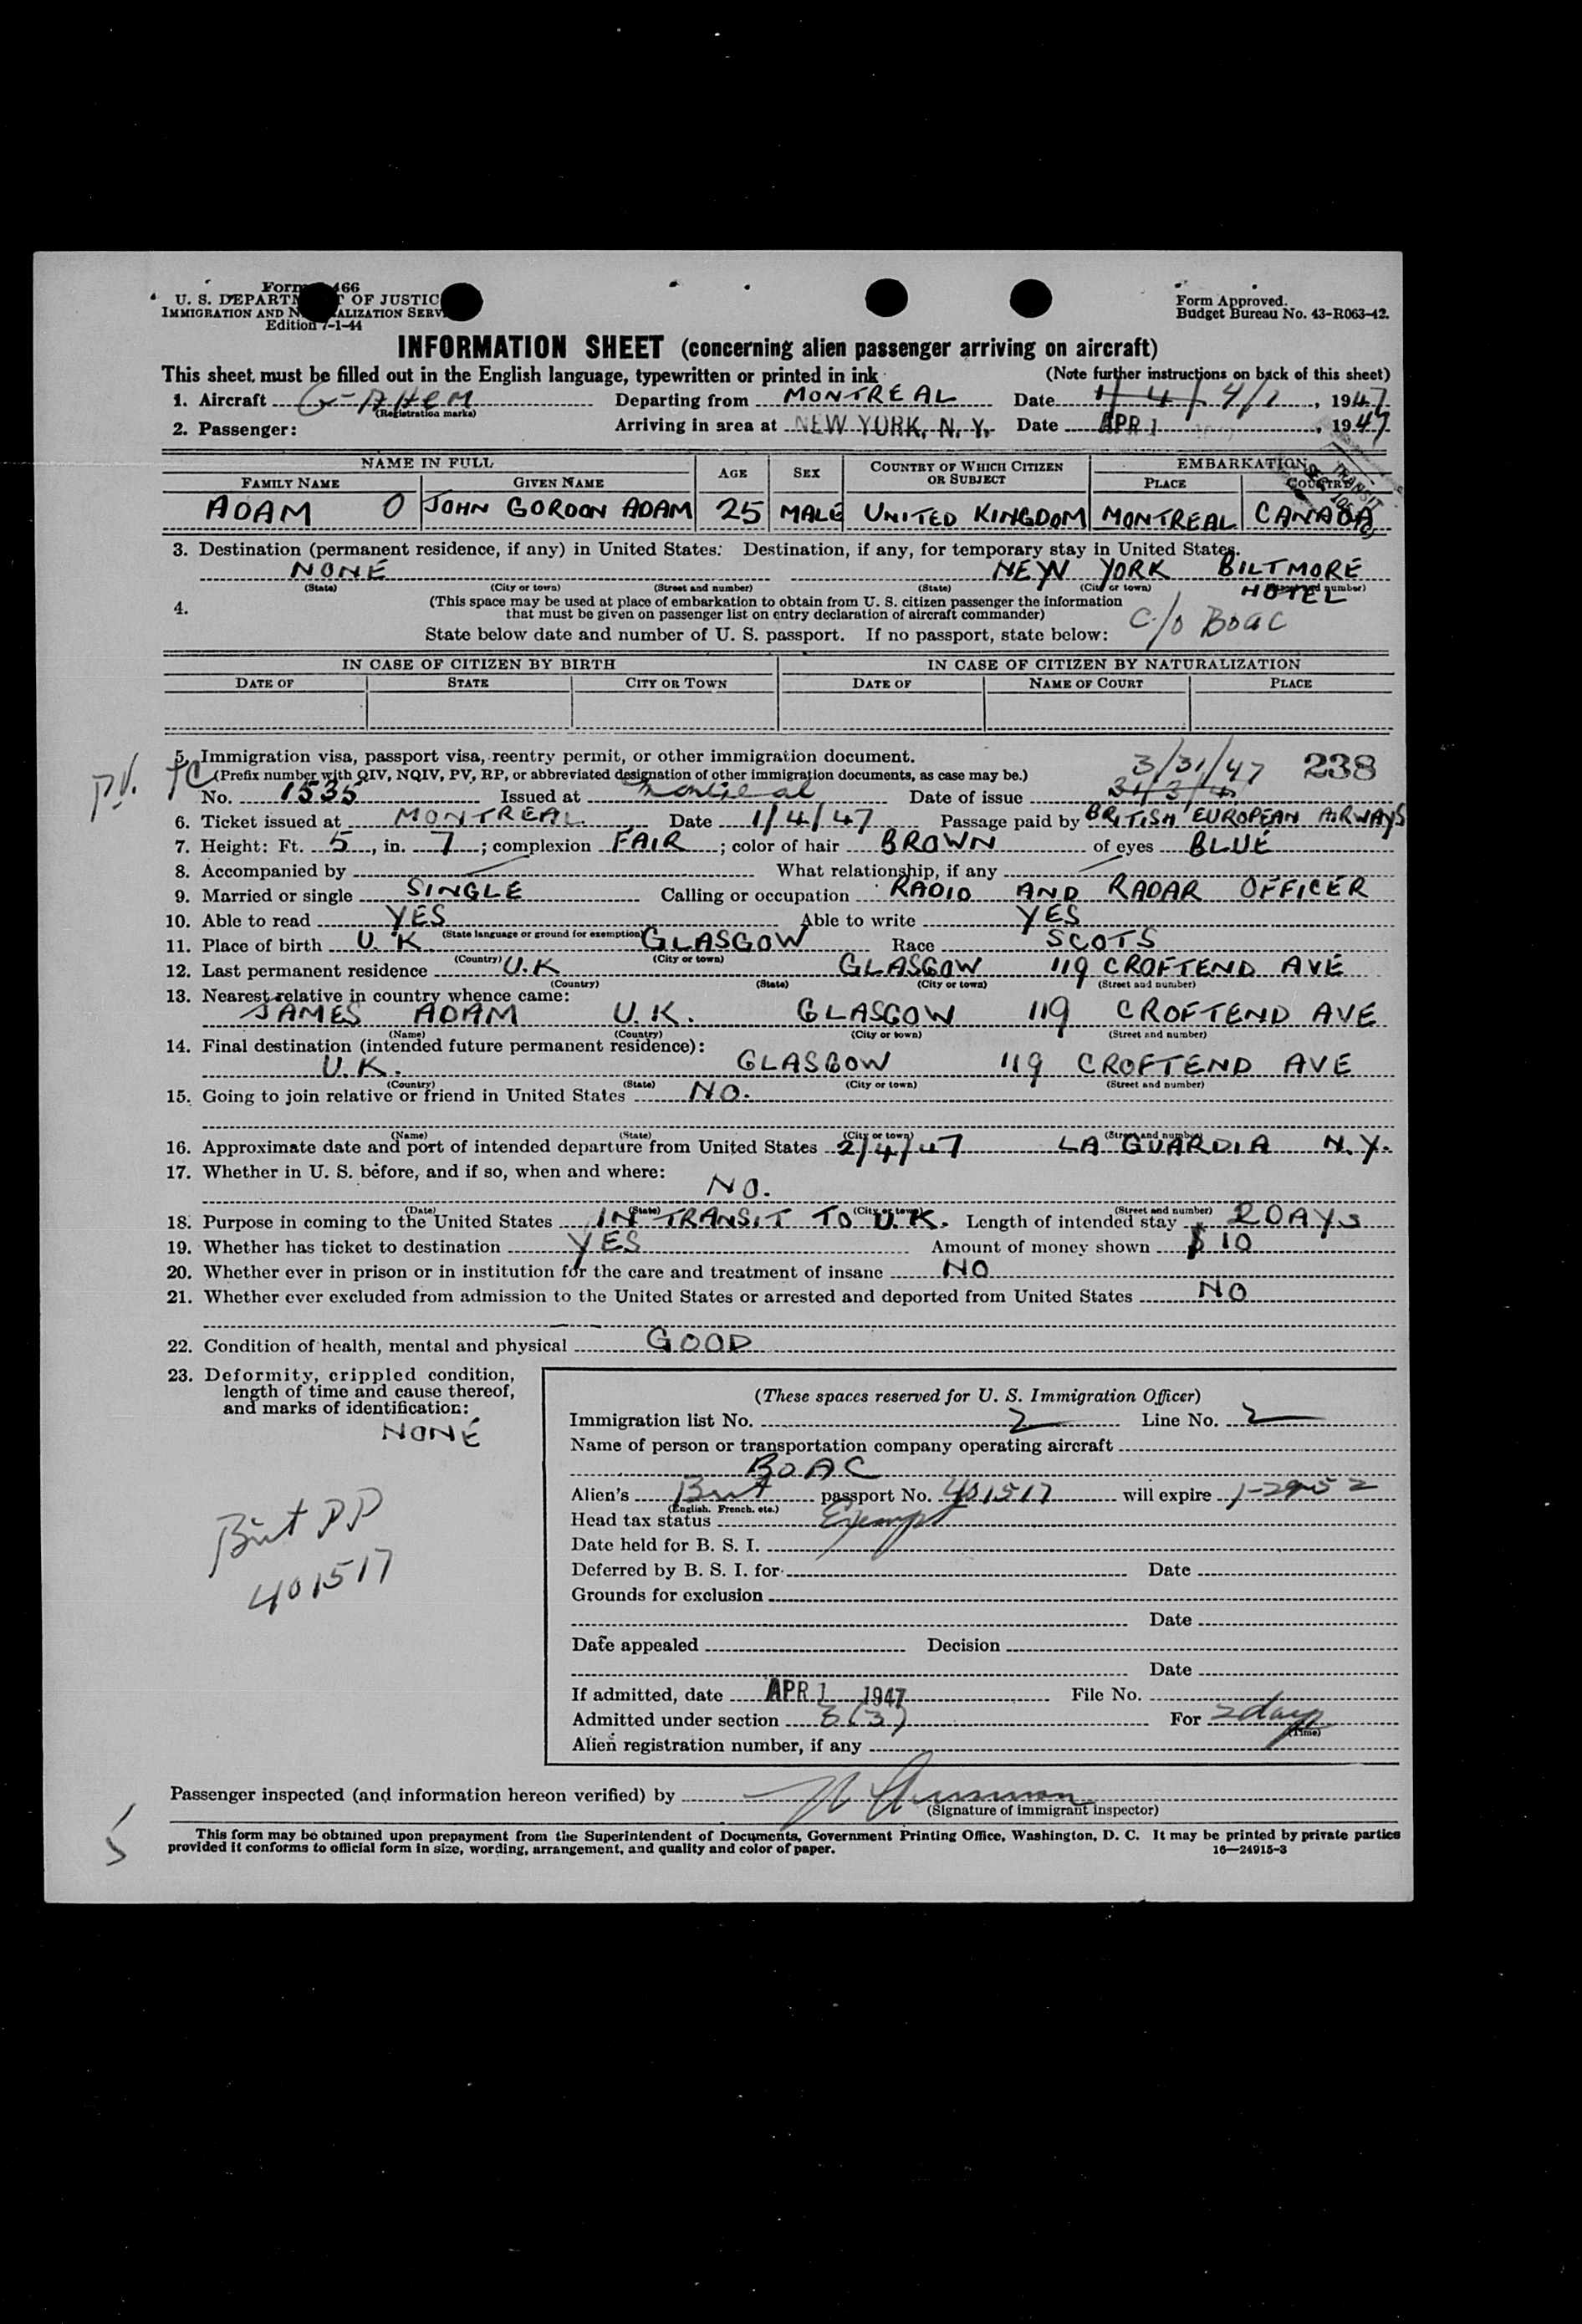 Form 466
U. S. DEPARTMENT OF JUSTICE
IMMIGRATION AND NATURALIZATION SERVICE
Edition 7-1-44
Form Approved.
Budget Bureau No. 43-R063-42.
INFORMATION SHEET (concerning alien passenger arriving on aircraft)
This sheet must be filled out in the English language, typewritten or printed in ink (Note further instructions on back of this sheet)
1. Aircraft G-AHEM Departing from MONTREAL Date 1/4/ 4/1, 1947
(Registration marks)
2. Passenger: Arriving in area at NEW YORK, N. Y. Date APR 1, 1947
NAME IN FULL AGE SEX COUNTRY OF WHICH CITIZEN OR SUBJECT EMBARKATION
FAMILY NAME GIVEN NAME PLACE COUNTRY
TRANSIT
ADAM O JOHN GORDON ADAM 25 MALE UNITED KINGDOM MONTREAL CANADA
3. Destination (permanent residence, if any) in United States: Destination, if any, for temporary stay in United States.
NONE NEW YORK BILTMORE
(State) (City or town) (Street and number) (State) (City or town) (Street and number)
HOTEL
4. (This space may be used at place of embarkation to obtain from U. S. citizen passenger the information
that must be given on passenger list on entry declaration of aircraft commander)
C/o BOAC
State below date and number of U. S. passport. If no passport, state below:
IN CASE OF CITIZEN BY BIRTH IN CASE OF CITIZEN BY NATURALIZATION
DATE OF STATE CITY OR TOWN DATE OF NAME OF COURT PLACE
5. Immigration visa, passport visa, reentry permit, or other immigration document.
3/31/47 238
P.V. TC (Prefix number with QIV, NQIV, PV, RP, or abbreviated designation of other immigration documents, as case may be.)
No. 1535 Issued at Montreal Date of issue 31/3/47
6. Ticket issued at MONTREAL Date 1/4/47 Passage paid by BRITISH EUROPEAN AIRWAYS
7. Height: Ft. 5, in. 7; complexion FAIR; color of hair BROWN of eyes BLUE
8. Accompanied by What relationship, if any
9. Married or single SINGLE Calling or occupation RADIO AND RADAR OFFICER
10. Able to read YES Able to write YES
(State language or ground for exemption)
11. Place of birth U.K GLASGOW Race SCOTS
(Country) (City or town)
12. Last permanent residence U.K GLASGOW 119 CROFTEND AVE
(Country) (State) (City or town) (Street and number)
13. Nearest relative in country whence came:
JAMES ADAM U.K. GLASGOW 119 CROFTEND AVE
(Name) (Country) (City or town) (Street and number)
14. Final destination (intended future permanent residence):
U.K. GLASGOW 119 CROFTEND AVE
(Country) (State) (City or town) (Street and number)
15. Going to join relative or friend in United States NO.
(Name) (State) (City or town) (Street and number)
16. Approximate date and port of intended departure from United States 2/4/47 LA GUARDIA N.Y.
17. Whether in U. S. before, and if so, when and where:
NO.
(Date) (State) (City or town) (Street and number)
18. Purpose in coming to the United States IN TRANSIT TO U.K. Length of intended stay 2 DAYS
19. Whether has ticket to destination YES Amount of money shown $10
20. Whether ever in prison or in institution for the care and treatment of insane NO
21. Whether ever excluded from admission to the United States or arrested and deported from United States NO
22. Condition of health, mental and physical GOOD
23. Deformity, crippled condition,
length of time and cause thereof,
and marks of identification:
NONE
Brit PP
401517
(These spaces reserved for U. S. Immigration Officer)
Immigration list No. 2 Line No. 2
Name of person or transportation company operating aircraft
BOAC
Alien's Brit passport No. 401517 will expire 1-29-52
(English, French, etc.)
Head tax status Exempt
Date held for B. S. I.
Deferred by B. S. I. for Date
Grounds for exclusion
Date
Date appealed Decision
Date
If admitted, date APR 1 1947 File No.
Admitted under section 3(3) For 2 days
(Time)
Alien registration number, if any
Passenger inspected (and information hereon verified) by
(Signature of immigrant inspector)
This form may be obtained upon prepayment from the Superintendent of Documents, Government Printing Office, Washington, D. C. It may be printed by private parties
provided it conforms to official form in size, wording, arrangement, and quality and color of paper. 16—24915-3